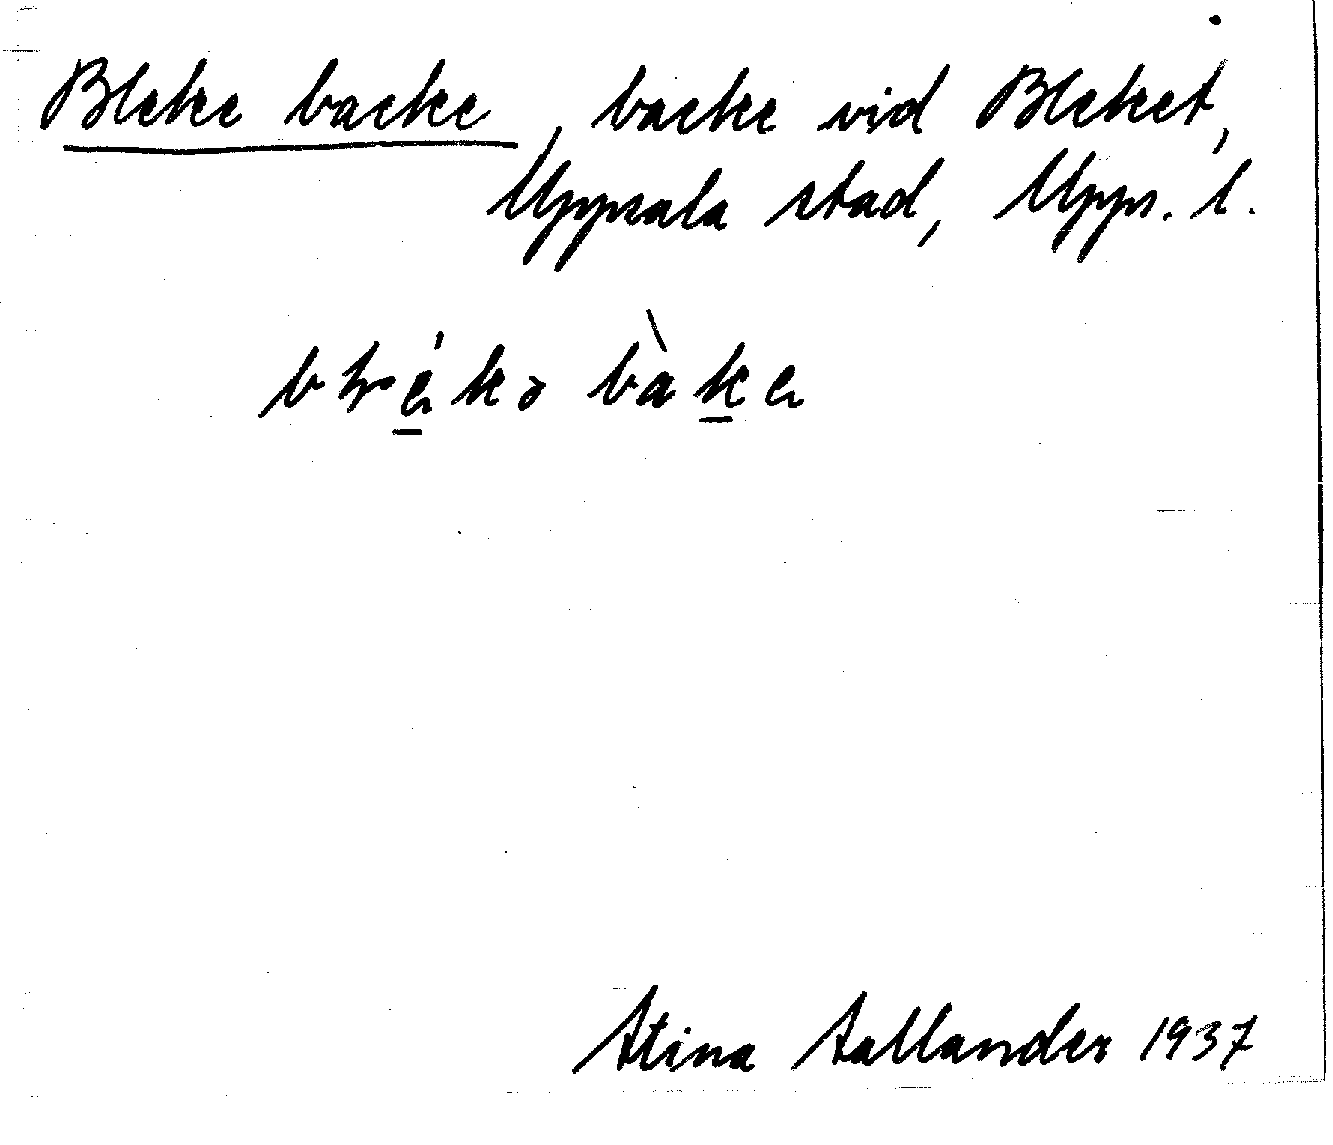 Bleke backe, backe vid Bleket,
Uppsala stad, Upps. l.
Stina Sallander 1937